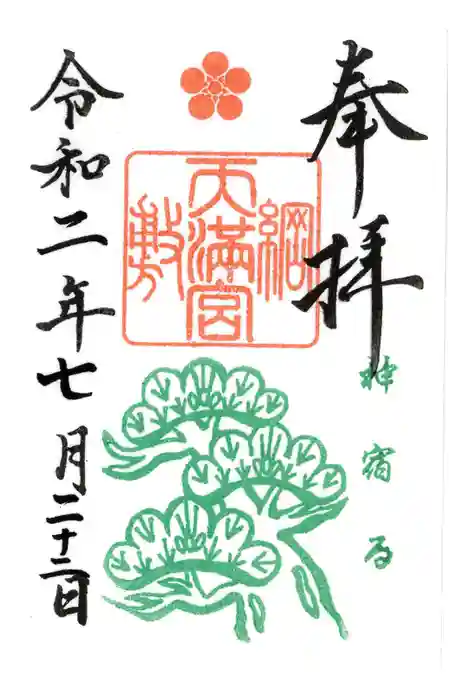 奉拝
神宿る
綱敷天満宮
令和二年七月二十二日